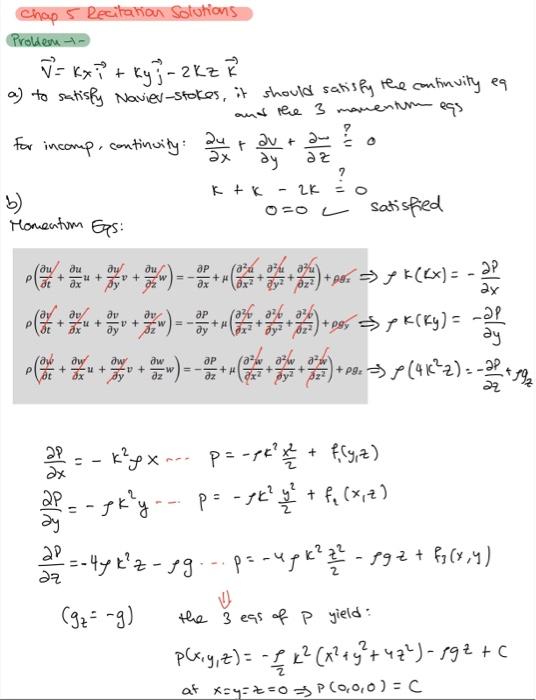 Chap 5 Recitation Solutions
Problem -1-
V⃗ = Kx i⃗ + Ky j⃗ - 2Kz k⃗
a) to satisfy Navier-Stokes, it should satisfy the continuity eq
and the 3 momentum eqs
For incomp, continuity: ∂u/∂x + ∂v/∂y + ∂w/∂z ?= 0
K + K - 2K ?= 0
b) 0=0 ✓ satisfied
Momentum Eqs:
ρ(∂u/∂t + ∂u/∂x u + ∂u/∂y v + ∂u/∂z w) = -∂P/∂x + μ(∂²u/∂x² + ∂²u/∂y² + ∂²u/∂z²) + ρgₓ ⇒ ρ K(Kx) = - ∂P/∂x
ρ(∂v/∂t + ∂v/∂x u + ∂v/∂y v + ∂v/∂z w) = -∂P/∂y + μ(∂²v/∂x² + ∂²v/∂y² + ∂²v/∂z²) + ρgᵧ ⇒ ρ K(Ky) = -∂P/∂y
ρ(∂w/∂t + ∂w/∂x u + ∂w/∂y v + ∂w/∂z w) = -∂P/∂z + μ(∂²w/∂x² + ∂²w/∂y² + ∂²w/∂z²) + ρg_z ⇒ ρ(4K²z) = -∂P/∂z + ρg_z
∂P/∂x = - K²ρx ---- P = -ρK² x²/2 + f₁(y,z)
∂P/∂y = - ρK²y ---- P = -ρK² y²/2 + f₂(x,z)
∂P/∂z = -4ρK²z - ρg ---- P = -4ρK² z²/2 - ρgz + f₃(x,y)
⇓
(g_z = -g) the 3 eqs of P yield:
P(x,y,z) = -ρ/2 K² (x²+y²+4z²) - ρgz + C
at x=y=z=0 ⇒ P(0,0,0) = C